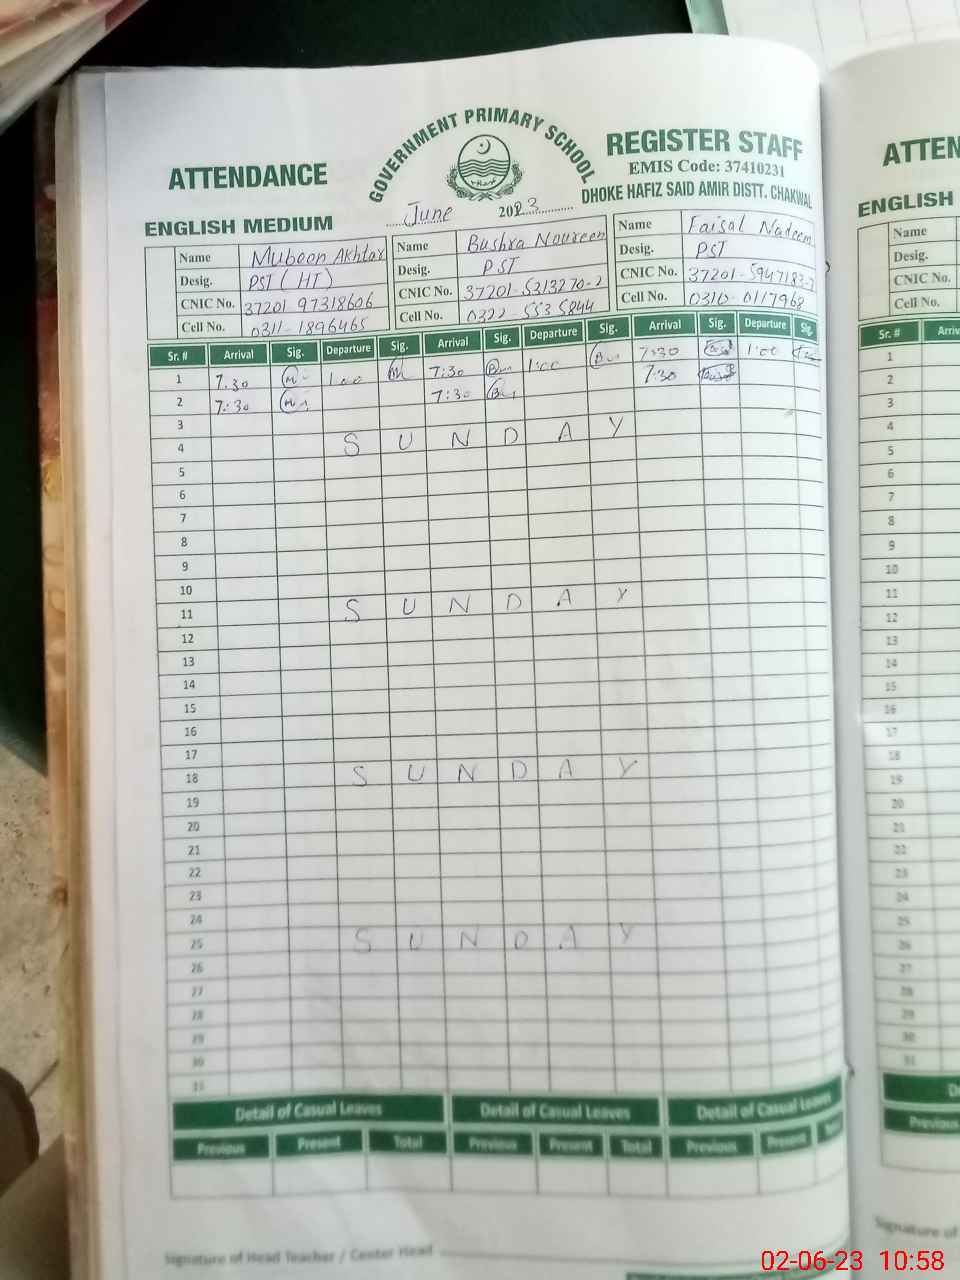 GOVERNMENT PRIMARY SCHOOL
ATTENDANCE
REGISTER STAFF
EMIS Code: 37410231
DHOKE HAFIZ SAID AMIR DISTT. CHAKWAL
ENGLISH MEDIUM
June 2023
Name Mubeen Akhtar Name Bushra Noureen Name Faisal Nadeem
Desig. PST (HT) Desig. PST Desig. PST
CNIC No. 37201 97318606 CNIC No. 37201-5213270-2 CNIC No. 37201-5947183-7
Cell No. 0311-1896465 Cell No. 0322-5535844 Cell No. 0310-0117968
Sr. # Arrival Sig. Departure Sig. Arrival Sig. Departure Sig. Arrival Sig. Departure Sig.
1 7.30 1:00 7:30 1:00 7:30 1:00
2 7:30 7:30 7:30
3
4 S U N D A Y
5
6
7
8
9
10
11 S U N D A Y
12
13
14
15
16
17
18 S U N D A Y
19
20
21
22
23
24
25 S U N D A Y
26
27
28
29
30
31
Detail of Casual Leaves Detail of Casual Leaves Detail of Casual Leaves
Previous Present Total Previous Present Total Previous Present Total
Signature of Head Teacher / Center Head
ATTEN
ENGLISH
Name
Desig.
CNIC No.
Cell No.
Sr. # Arriv
1
2
3
4
5
6
7
8
9
10
11
12
13
14
15
16
17
18
19
20
21
22
23
24
25
26
27
28
29
30
31
Previous
Signature of
02-06-23 10:58